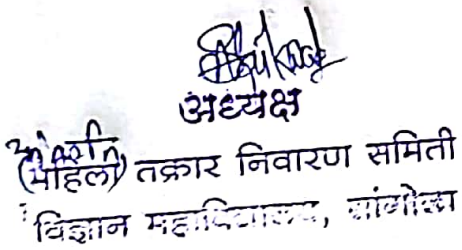 अध्यक्ष
अंतर्गत
(महिला) तक्रार निवारण समिती
विज्ञान महाविद्यालय, सांगोला